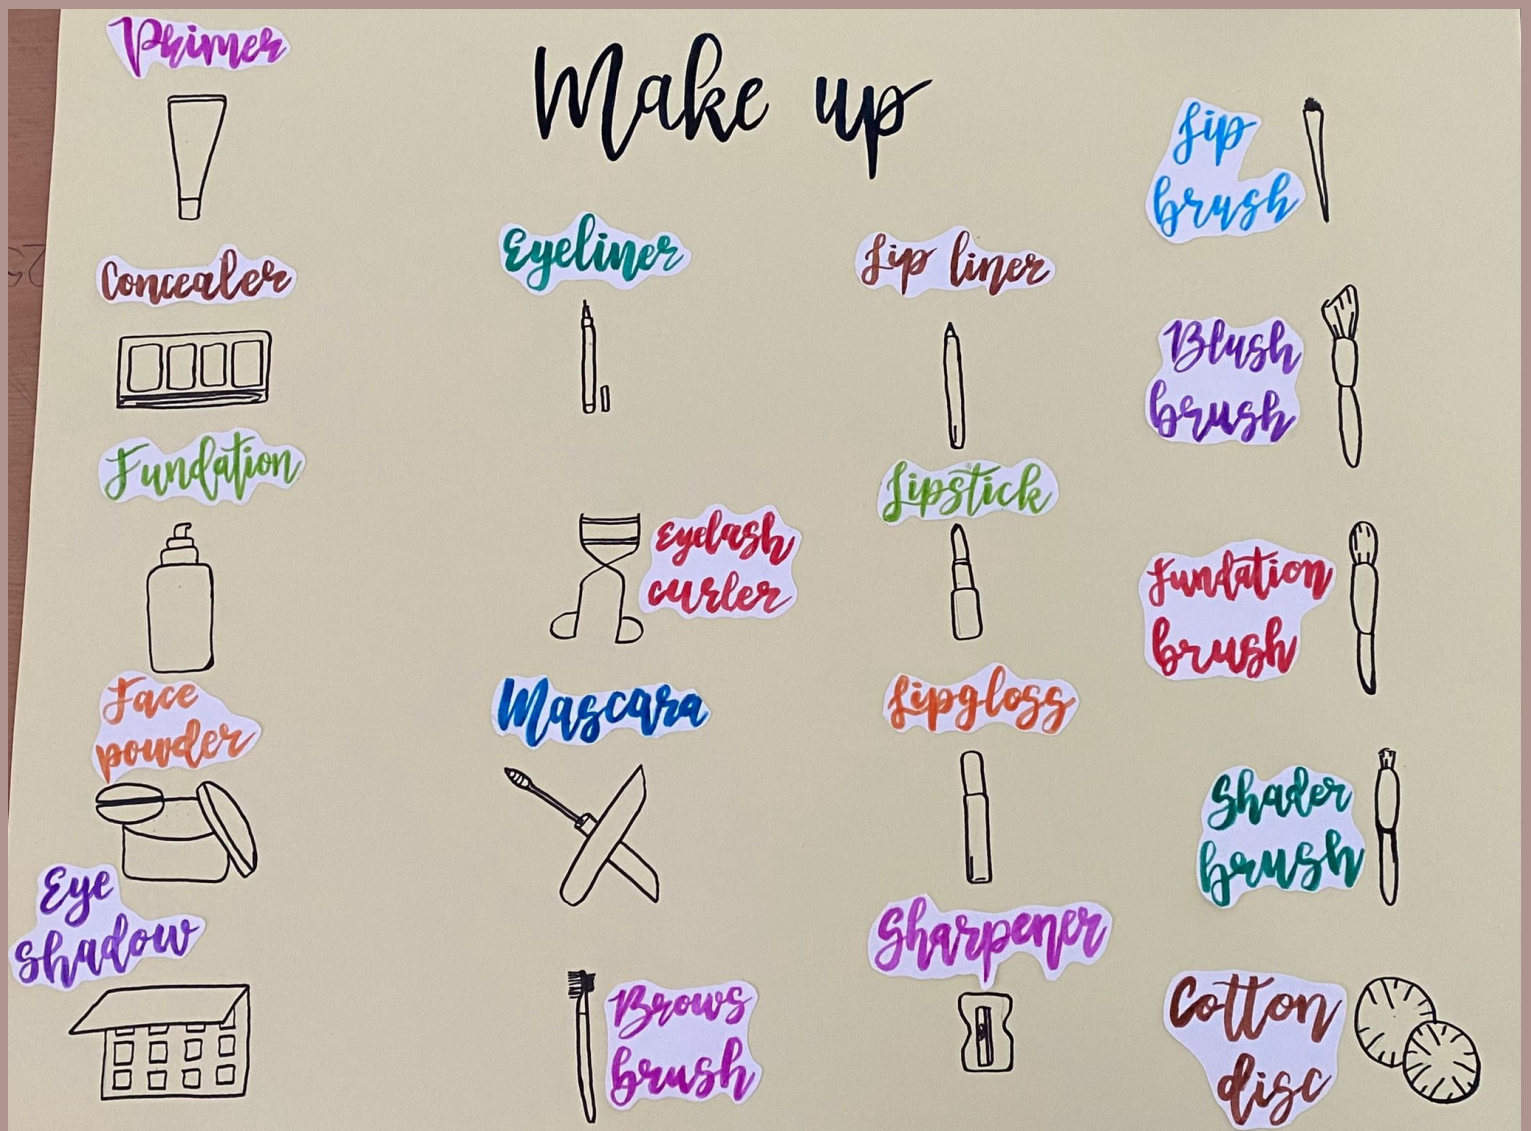 Make up
Primer
Concealer
Fundation
Face
powder
Eye
shadow
Eyeliner
Eyelash
curler
Mascara
Brows
brush
Lip liner
Lipstick
Lipgloss
Sharpener
Lip
brush
Blush
brush
Fundation
brush
Shader
brush
Cotton
disc